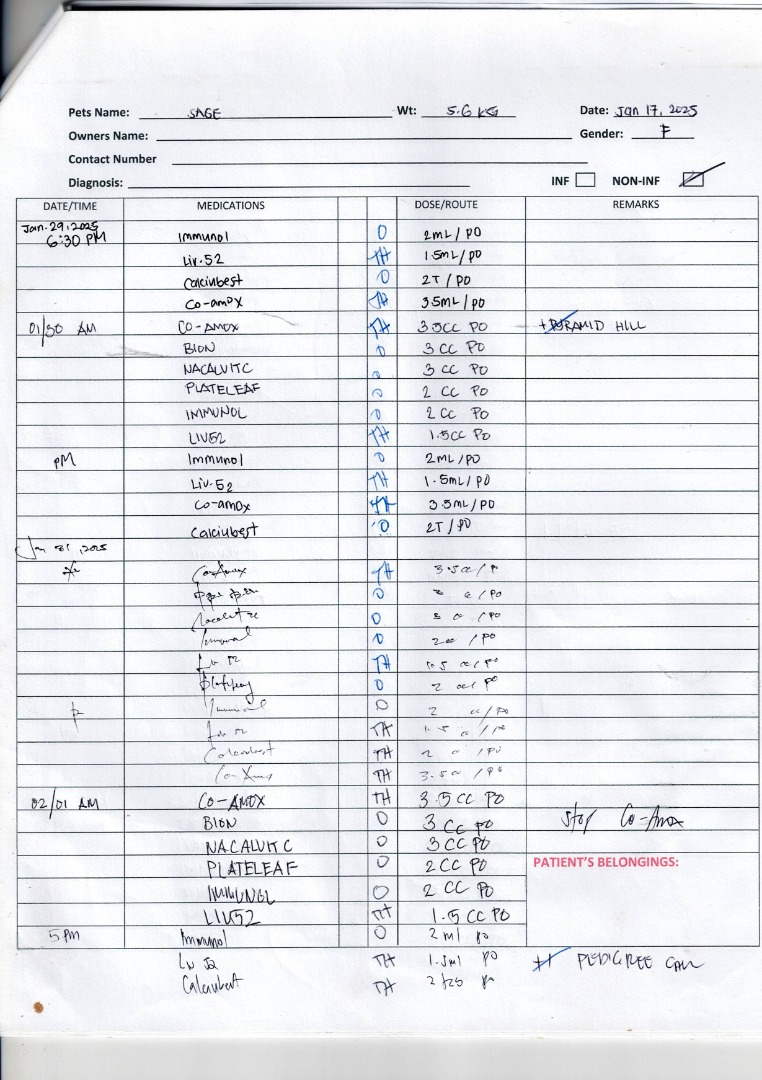 Pets Name: SAGE Wt: 5.6 KG Date: Jan 17, 2025
Owners Name: Gender: F
Contact Number
Diagnosis: INF NON-INF
DATE/TIME MEDICATIONS DOSE/ROUTE REMARKS
Jan. 29, 2025
6:30 PM Immunol O 2mL / PO
Liv. 52 TH 1.5mL / PO
Calciubest O 2T / PO
Co-amox TH 3.5mL / PO
01/30 AM CO-AMOX TH 3.5CC PO + PYRAMID HILL
BION O 3 CC PO
NACALVIT C O 3 CC PO
PLATELEAF O 2 CC PO
IMMUNOL O 2 CC PO
LIV52 TH 1.5CC PO
PM Immunol O 2mL / PO
Liv. 52 TH 1.5mL / PO
Co-amox TH 3.5mL / PO
Calciubest O 2T / PO
Jan 31, 2025
Co-Amox TH 3.5cc / P
O / PO
O / PO
O 2cc / PO
Liv 52 TH 1.5 cc / PO
O 2 cc / PO
O 2 cc / PO
Liv 52 TH 1.5 cc / PO
Calciubest TH 2 / PO
TH 3.5cc / PO
02/01 AM CO-AMOX TH 3.5 CC PO
BION O 3 CC PO Stop Co-Amox
NACALVIT C O 3 CC PO
PLATELEAF O 2 CC PO PATIENT'S BELONGINGS:
IMMUNOL O 2 CC PO
LIV52 TH 1.5 CC PO
5 PM Immunol O 2 ml po
Liv 52 TH 1.5ml po
Calciubest TH 2 po PEDIGREE CAN